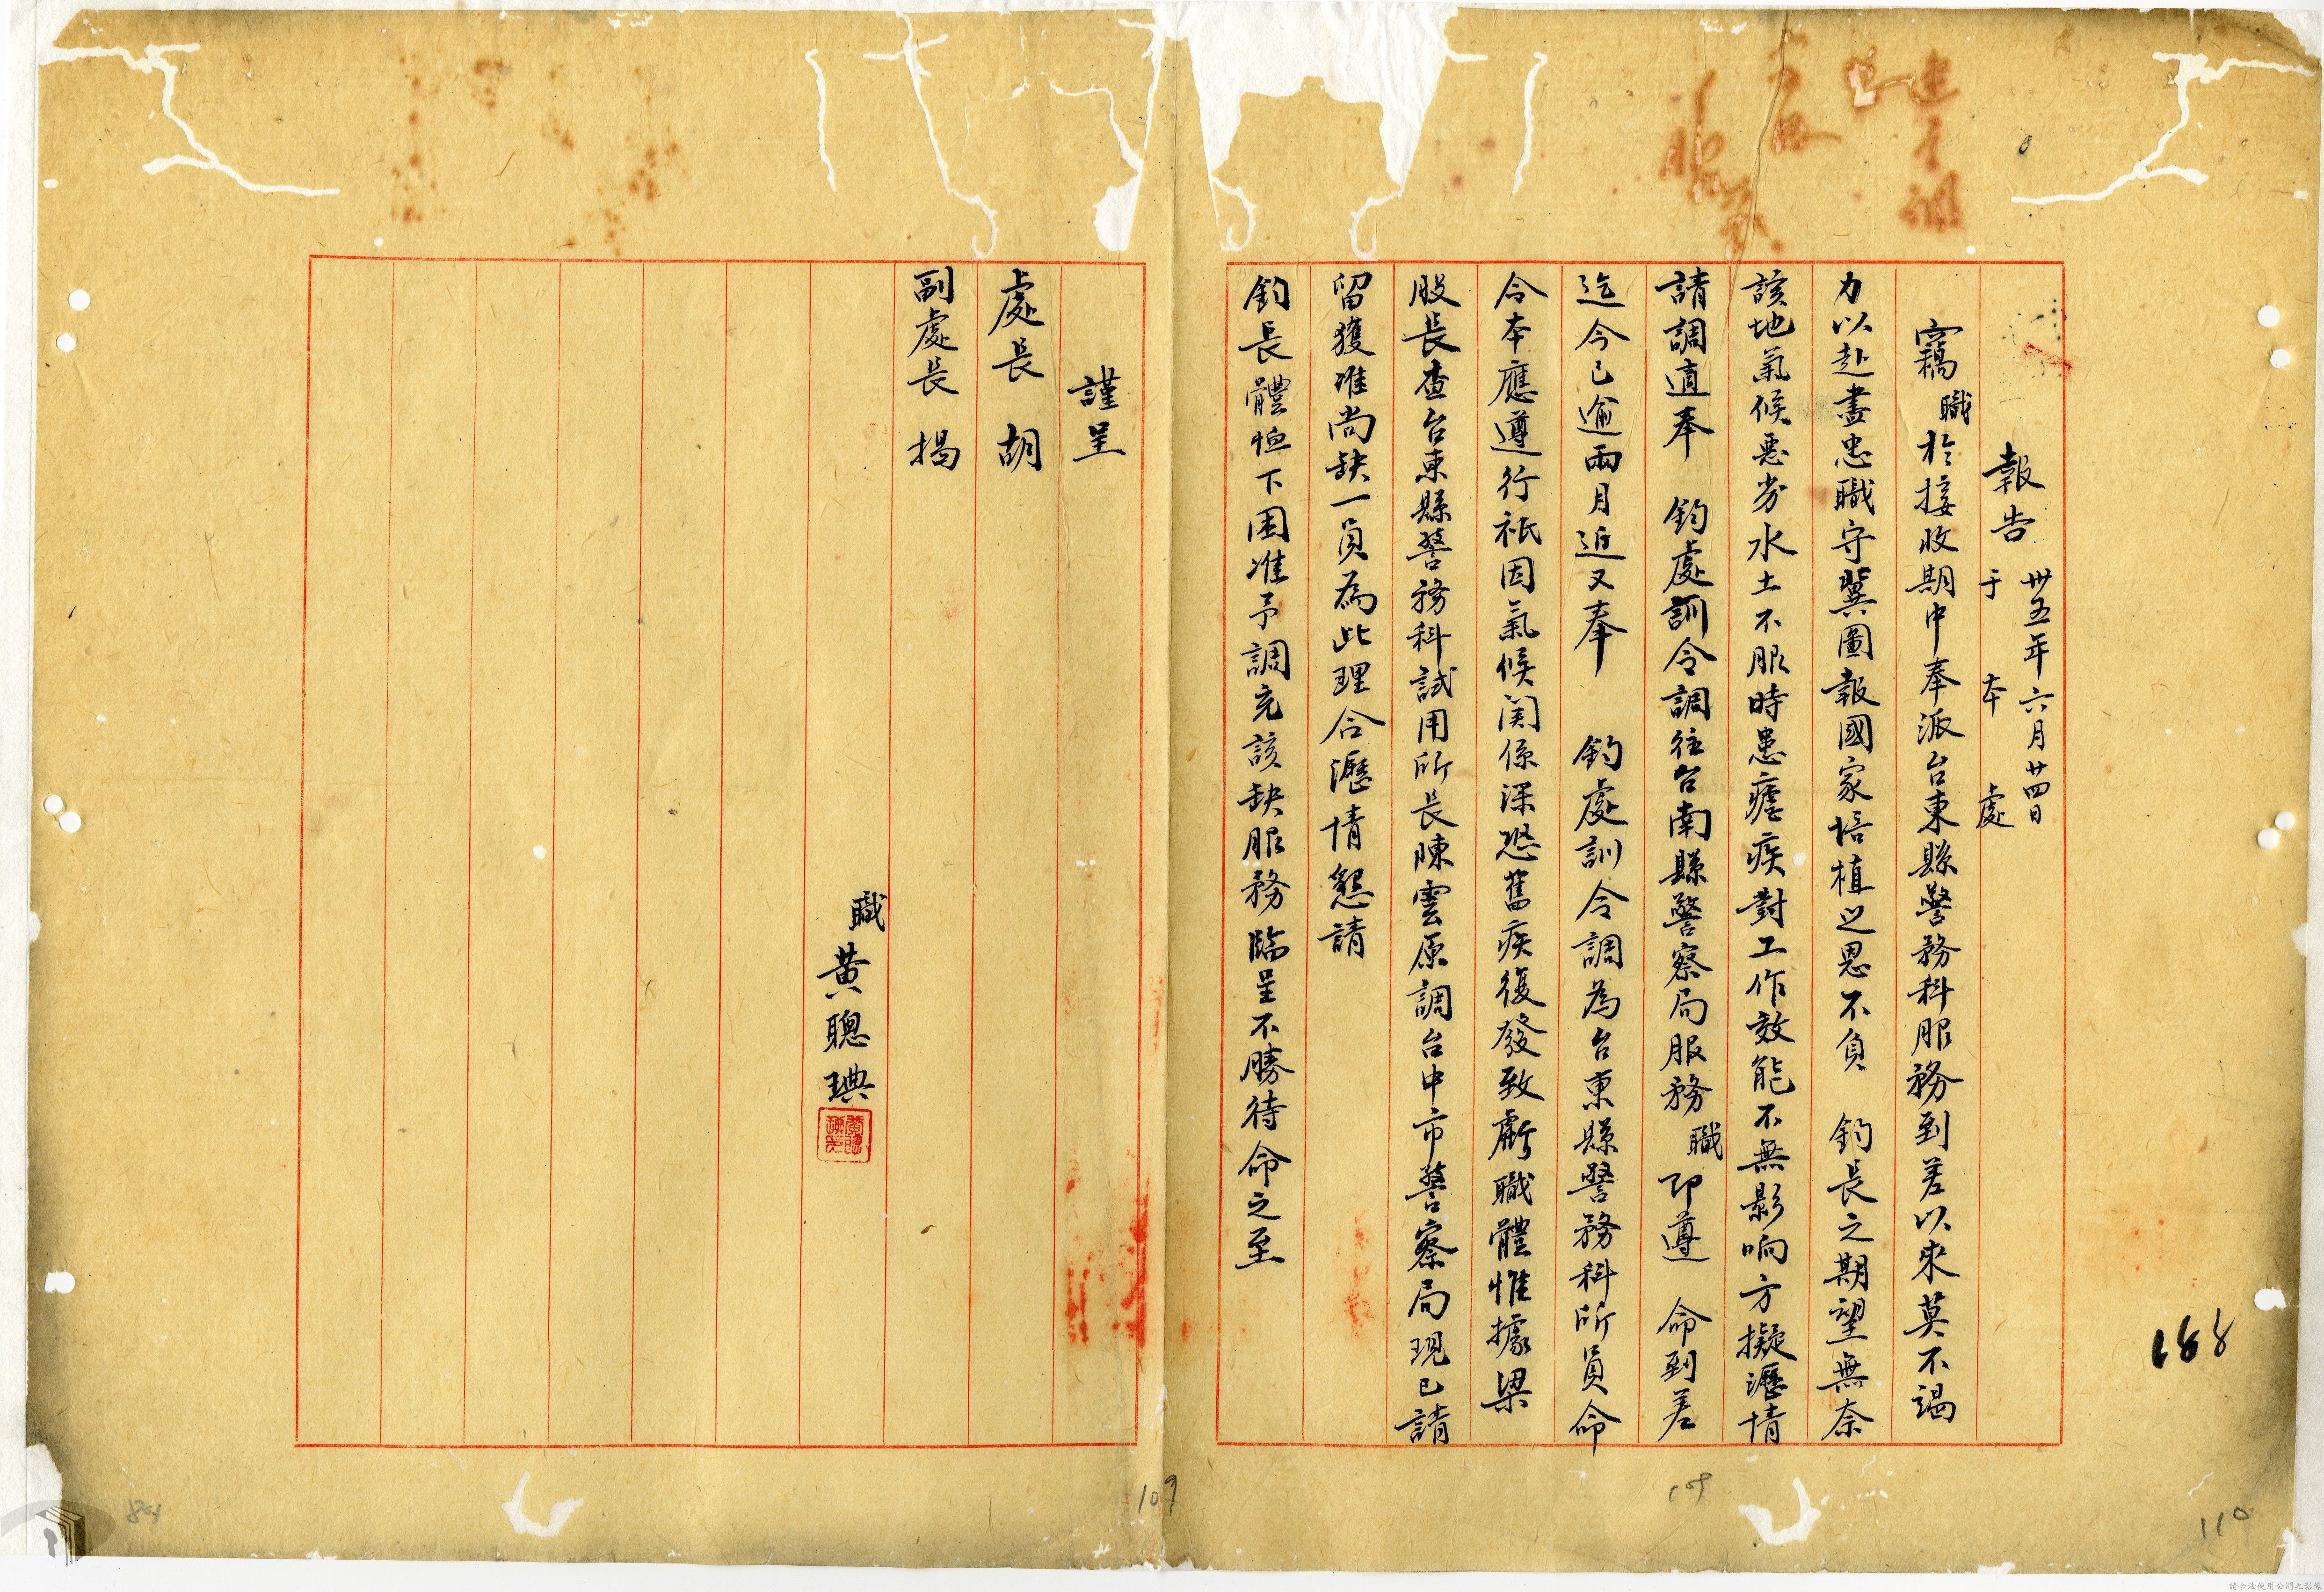 報告 卅五年六月廿四日
于本處
竊職於接收期中奉派台東縣警務科服務到差以來莫不竭
力以赴盡忠職守冀圖報國家培植之恩不負 鈞長之期望無奈
該地氣候惡劣水土不服時患瘧疾對工作效能不無影响方擬瀝情
請調適奉 鈞處訓令調往台南縣警察局服務職即遵 命到差
迄今已逾兩月近又奉 鈞處訓令調為台東縣警務科所員命
令本應遵行祇因氣候関係深恐舊疾復發致虧職體惟據梁
股長查台東縣警務科試用所長陳雲原調台中市警察局現已請
留獲准尚缺一員為此理合瀝情懇請
鈞長體恤下困准予調充該缺服務臨呈不勝待命之至
謹呈
處長 胡
副處長 揭
職 黃聰琠
188
109
109
110
請合法使用公開之影像